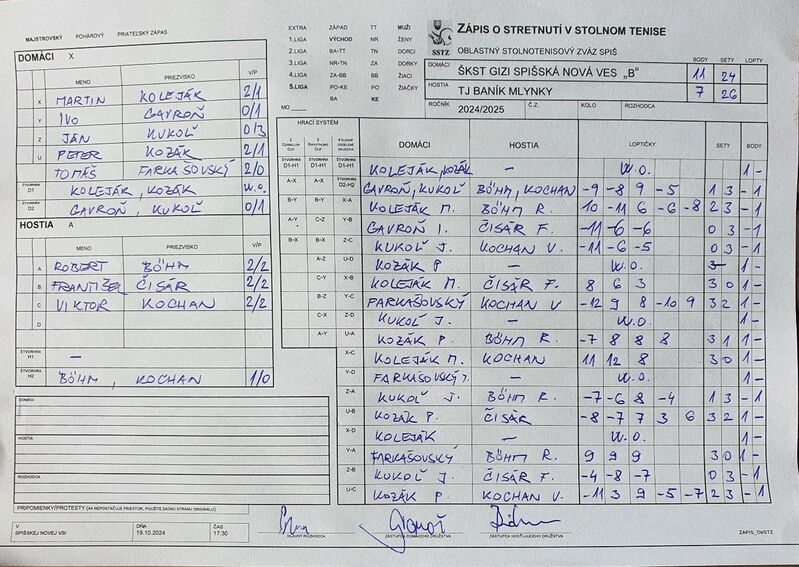 MAJSTROVSKÝ POHÁROVÝ PRIATEĽSKÝ ZÁPAS
DOMÁCI X
MENO PRIEZVISKO V/P
X MARTIN KOLEJÁK 2/1
Y IVO GAVROŇ 0/1
Z JÁN KUKOĽ 0/3
U PETER KOZÁK 2/1
TOMÁŠ FARKAŠOVSKÝ 2/0
ŠTVORHRA D1 KOLEJÁK, KOZÁK W.O.
ŠTVORHRA D2 GAVROŇ, KUKOĽ 0/1
HOSTIA A
MENO PRIEZVISKO V/P
A ROBERT BÖHM 2/2
B FRANTIŠEK ČISÁR 2/2
C VIKTOR KOCHAN 2/2
D
ŠTVORHRA H1 —
ŠTVORHRA H2 BÖHM, KOCHAN 1/0
DOMÁCI
HOSTIA
ROZHODCA
PRIPOMIENKY/PROTESTY (AK NEPOSTAČUJE PRIESTOR, POUŽITE ZADNÚ STRANU ORIGINÁLU)
V SPIŠSKEJ NOVEJ VSI
DŇA 19.10.2024
ČAS 17:30
EXTRA ZÁPAD TT MUŽI
1.LIGA VÝCHOD NR ŽENY
2.LIGA BA-TT TN DORCI
3.LIGA NR-TN ZA DORKY
4.LIGA ZA-BB BB ŽIACI
5.LIGA PO-KE PO ŽIAČKY
BA KE
MO
SSTZ
ZÁPIS O STRETNUTÍ V STOLNOM TENISE
OBLASTNÝ STOLNOTENISOVÝ ZVÄZ SPIŠ
BODY SETY LOPTY
DOMÁCI ŠKST GIZI SPIŠSKÁ NOVÁ VES „B" 11 24
HOSTIA TJ BANÍK MLYNKY 7 26
ROČNÍK 2024/2025 Č.Z. KOLO ROZHODCA
HRACÍ SYSTÉM
DOMÁCI HOSTIA LOPTIČKY SETY BODY
D1-H1 D1-H1 D1-H1 KOLEJÁK, KOZÁK W.O. 1 -
A-X A-X D2-H2 GAVROŇ, KUKOĽ BÖHM, KOCHAN -9 -8 9 -5 1 3 - 1
B-Y B-Y X-A KOLEJÁK M. BÖHM R. 10 -11 6 -6 -8 2 3 - 1
A-Y C-Z Y-B GAVROŇ I. ČISÁR F. -11 -6 -6 0 3 - 1
B-X B-X Z-C KUKOĽ J. KOCHAN V. -11 -6 -5 0 3 - 1
A-Z U-D KOZÁK P — W.O. 1 -
C-Y X-B KOLEJÁK M. ČISÁR F. 8 6 3 3 0 1 -
B-Z Y-C FARKAŠOVSKÝ KOCHAN V -12 9 8 -10 9 3 2 1 -
C-X Z-D KUKOĽ J. — W.O. 1 -
A-Y U-A KOZÁK P. BÖHM R. -7 8 8 8 3 1 1 -
X-C KOLEJÁK M. KOCHAN 11 12 8 3 0 1 -
Y-D FARKAŠOVSKÝ T. — W.O. 1 -
Z-A KUKOĽ J. BÖHM R. -7 -6 8 -4 1 3 - 1
U-B KOZÁK P. ČISÁR -8 -7 7 3 6 3 2 1 -
X-D KOLEJÁK — W.O. 1 -
Y-A FARKAŠOVSKÝ BÖHM R. 9 9 9 3 0 1 -
Z-B KUKOĽ J. ČISÁR F. -4 -8 -7 0 3 - 1
U-C KOZÁK P. KOCHAN V. -11 3 9 -5 -7 2 3 - 1
HLAVNÝ ROZHODCA
ZÁSTUPCA DOMÁCEHO DRUŽSTVA
ZÁSTUPCA HOSŤUJÚCEHO DRUŽSTVA
ZÁPIS_OSTZ